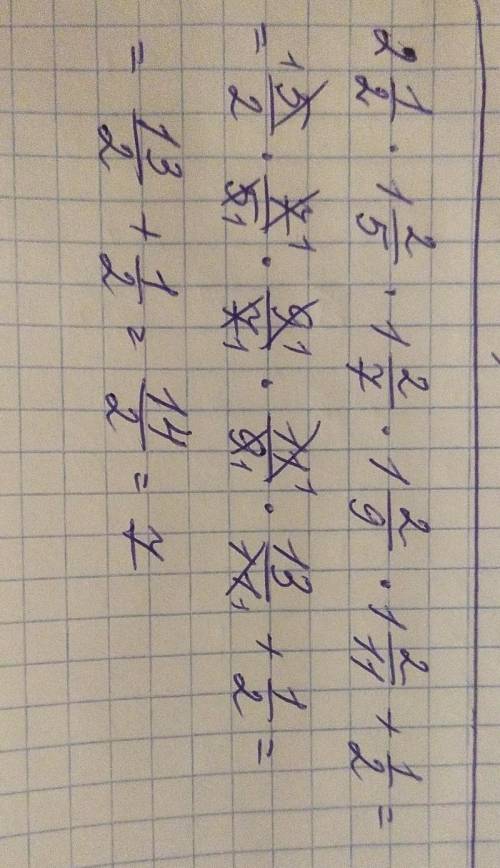 2 1/2 · 1 2/5 · 1 2/7 · 1 2/9 · 1 2/11 + 1/2 =
= 5/2 · 7/5 · 9/7 · 11/9 · 13/11 + 1/2 =
= 13/2 + 1/2 = 14/2 = 7